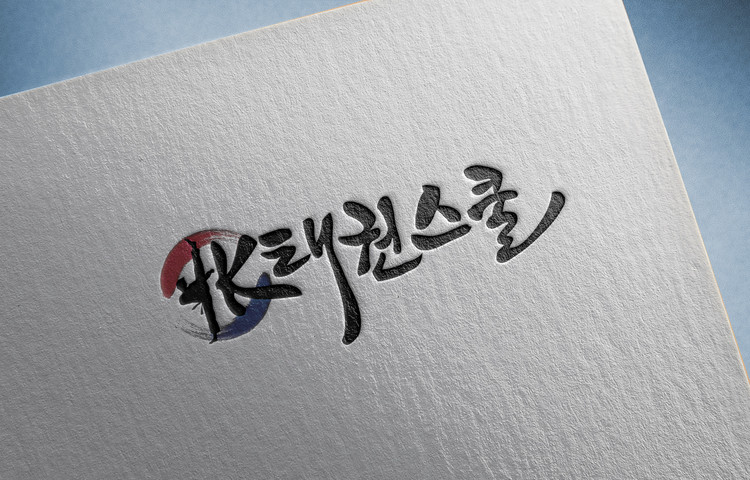 K태권스쿨